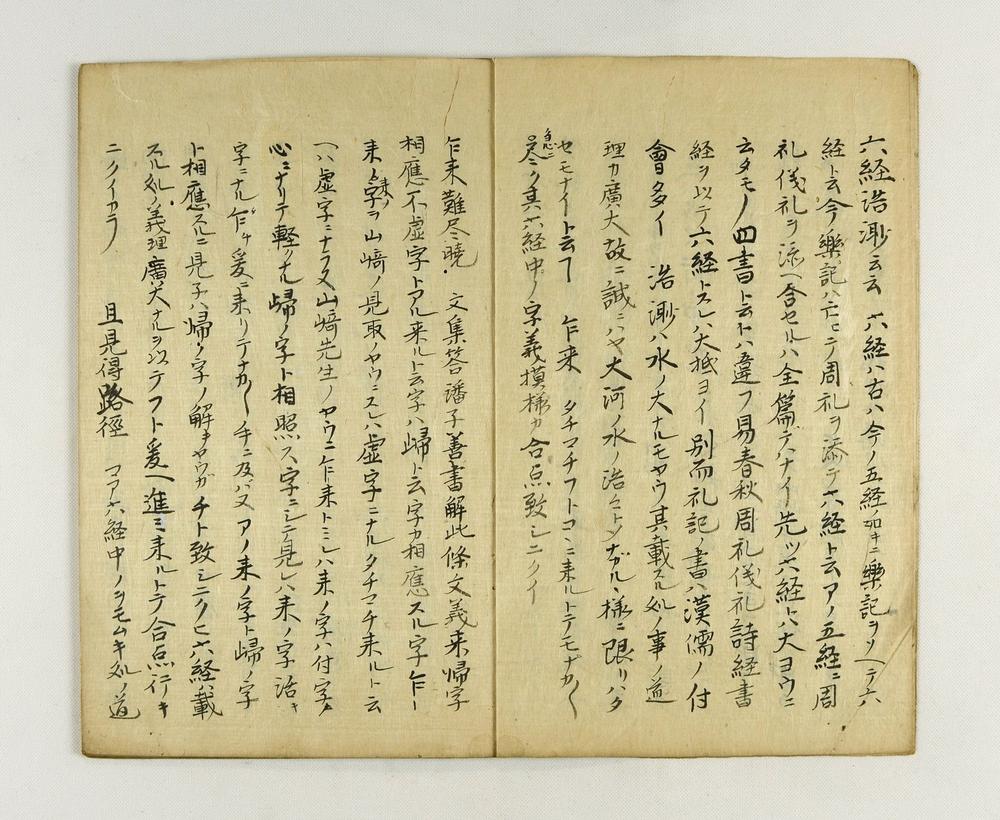 六経浩渺云云 六経ハ古ハ今ノ五経ニ樂記ヲソヘテ六
経ト云今樂記ハ亡ヒテ周礼ヲ添テ六経ト云アノ五経ニ周
礼儀礼ヲ添ヘ含セルハ全篇デハナイ先ツ六経トハ大ヨウニ
云タモノ四書ト云トハ違フ易春秋周礼儀礼詩経書
経ヲ以テ六経トスレハ大抵ヨイ別而礼記ノ書ハ漢儒ノ付
會多イ 浩渺ハ水ノ大ナルモヤウ其載スル処ノ事ノ道
理カ廣大故ニ誠ニハヤ大河ノ水ノ浩々トメナガルヽ様ニ限リハタ
セモナイト云フ 乍来 タチマチフトコヽニ来ルトテモナカ〱
急ニ尽ク其六経中ノ字義摸様カ合点致シニクイ
乍来難尽曉 文集答潘子善書解此條文義来帰字
相應不虚字トアル来ルト云字ハ帰ト云字カ相應スル字乍ー
来ト来ノ字ヲ山﨑ノ見取ノヤウニスレハ虚字ニナルタチマチ来ルト云
ヘハ虚字ニナラヌ山﨑先生ノヤウニ乍来トミレハ来ノ字ハ付字ノ
心ニナリテ軽クナル帰ノ字ト相照ス字ニシテ見レハ来ノ字活キ
字ニナル乍チ爰ニ来リテナカ〱手ニ及バヌアノ来ノ字ト帰ノ字
ト相應スルニ見子ハ帰ノ字ノ解キヤウガチト致シニクヒ六経ハ載
スル処ノ義理廣大ナルヲ以テフト爰ヘ進ミ来ルトテ合点行キ
ニクイカラノ 且見得路徑 マア六経中ノヲモムキ処ノ道